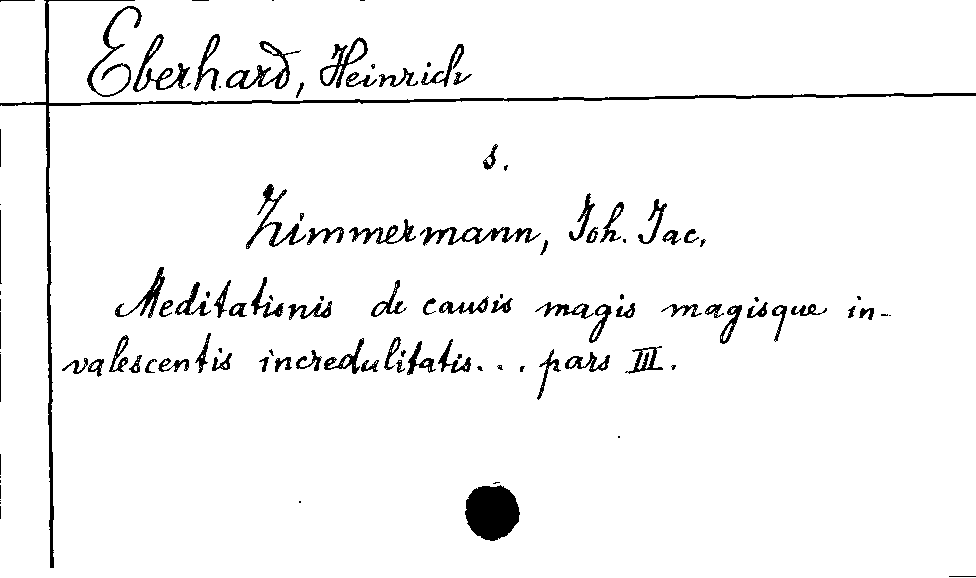 Eberhard, Heinrich
s.
Zimmermann, Joh. Jac.
Meditationis de causis magis magisque in-
valescentis incredulitatis... pars III.